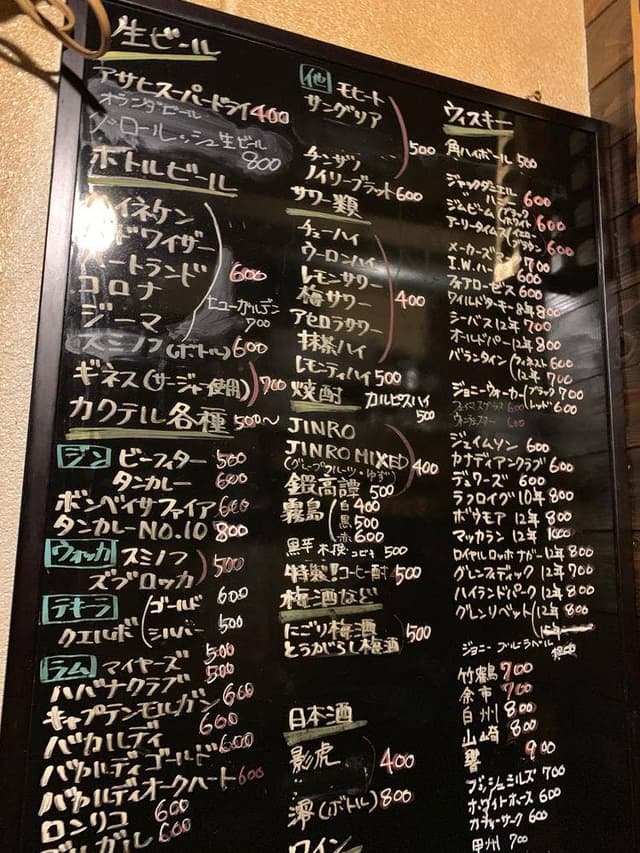 生ビール
アサヒスーパードライ 400
オランダビール
グロールッシュ生ビール
800
ボトルビール
ハイネケン
バドワイザー
ハートランド 600
コロナ
ヒューガルデン
700
ジーマ
スミノフ(ボトル) 600
ギネス(サージャー使用) 700
カクテル各種 500〜
ジン ビーフィター 500
タンカレー 600
ボンベイサファイア 600
タンカレーNO.10 800
ウォッカ スミノフ
ズブロッカ 500
テキーラ
クエルボ
ゴールド 600
シルバー 500
ラム マイヤーズ 500
ハバナクラブ 500
キャプテンモルガン 600
バカルディ 600
バカルディゴールド 600
バカルディオークハート 600
ロンリコ 600
ブルガル 600
他 モヒート
サングリア
500
チンザノ
ノイリープラット 600
サワー類
チューハイ
ウーロンハイ
レモンサワー
梅サワー 400
アセロラサワー
抹茶ハイ
レモンティハイ 500
焼酎 カルピスハイ
500
JINRO
JINRO MIXED
(グレープフルーツ・ゆず) 400
鍛高譚 500
霧島
白 400
黒 500
赤 600
500
特製!コーヒー酎 500
梅酒など
にごり梅酒
とうがらし梅酒 500
日本酒
影虎
400
澪(ボトル) 800
ワイン
ウィスキー
角ハイボール 500
ジャックダニエル
〃 ハニー 600
ジムビーム(ブラック
ホワイト 600
アーリータイムス(イエロー
ブラウン 600
メーカーズマーク 700
I.W.ハーパー 600
フォアローゼス 600
ワイルドターキー8年 800
シーバス12年 700
オールドパー12年 800
バランタイン(フィネスト 600
12年 700
ジョニーウォーカー(ブラック 700
レッド 600
フェイマスグラウス 600
600
ジェイムソン 600
カナディアンクラブ 600
デュワーズ 600
ラフロイグ10年 800
ボウモア12年 800
マッカラン12年 1000
ロイヤルロッホナガー12年 800
グレンフィディック12年 700
ハイランドパーク12年 800
グレンリベット(12年 800
ジョニーブルーラベル
竹鶴 700
余市 700
白州 800
山崎 800
響 900
ブッシュミルズ 700
ホワイトホース 600
カティーサーク 600
甲州 700